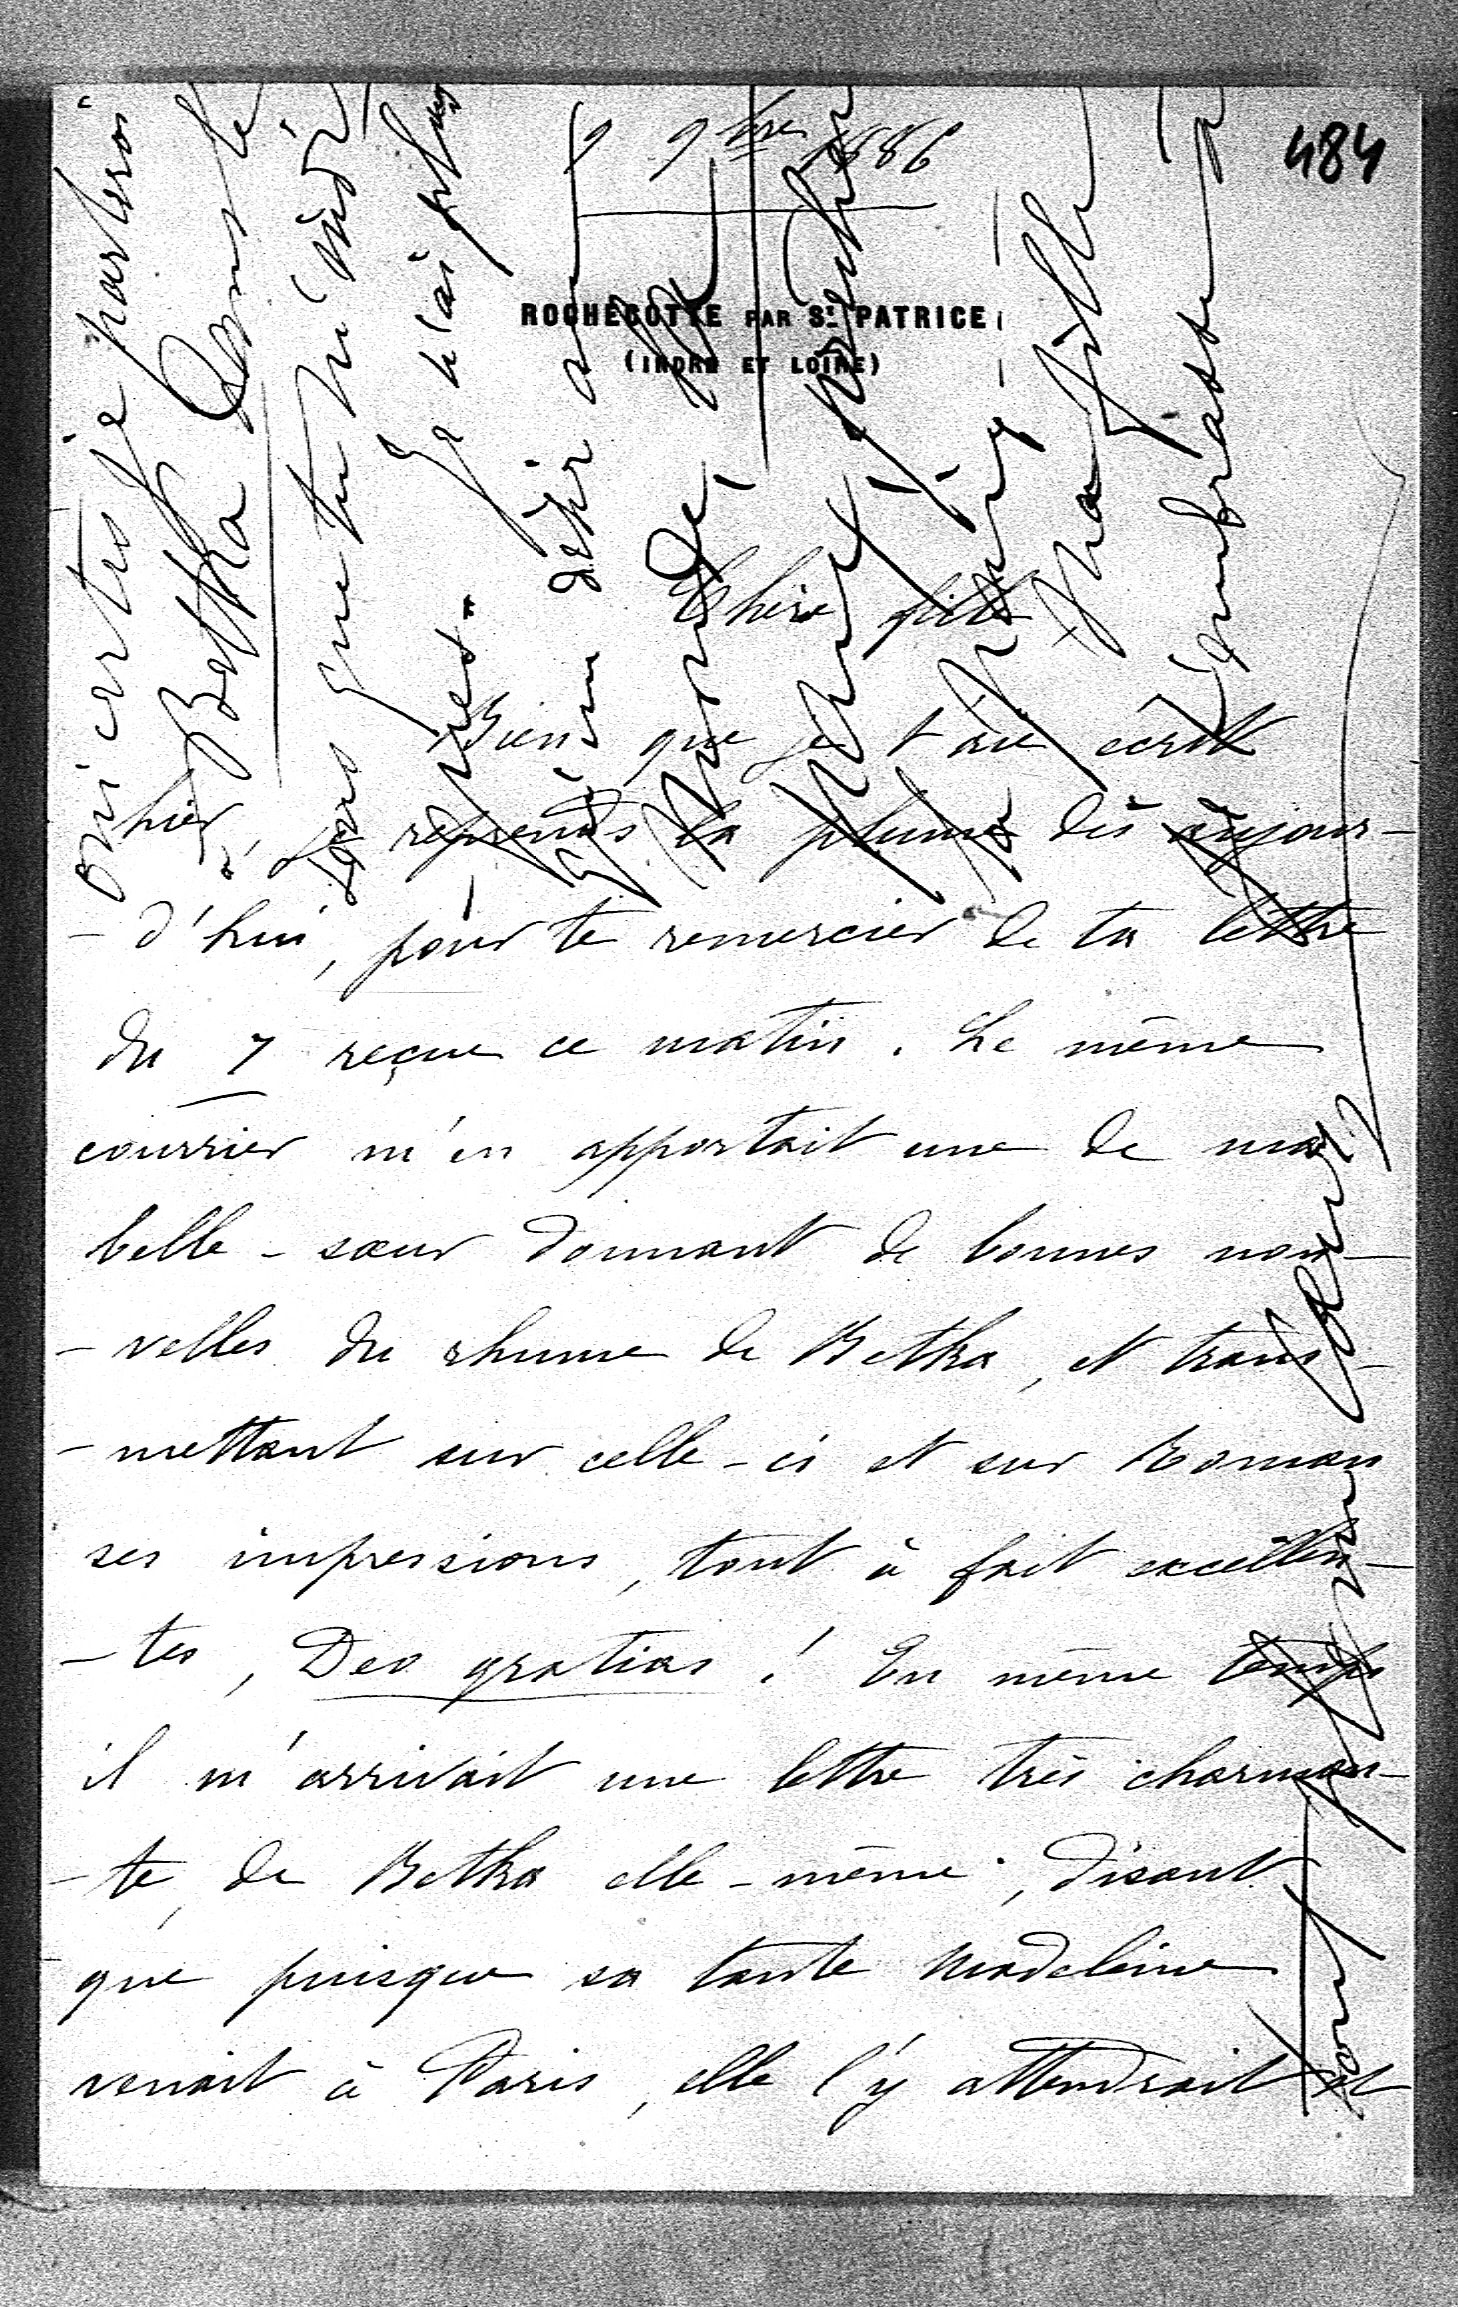 484
9 9bre 1886
ROCHECOTTE PAR St. PATRICE
(INDRE ET LOIRE)
Chère fille
Bien que je t'aie écrit
hier, je reprends la plume dès aujour-
-d'hui, pour te remercier de ta lettre
du 7 reçue ce matin. Le même
courrier m'en apportait une de ma
belle-sœur donnant de bonnes nou-
-velles du rhume de Betka, et trans-
-mettant sur celle-ci et sur Roman
ses impressions, tout à fait excellen-
-tes, Deo gratias! En même temps
il m'arrivait une lettre très charman-
-te, de Betka elle-même, disant
que puisque sa tante Madeleine
venait à Paris, elle l'y attendrait et
Oui certes je parlerai
à Betka dans le
sens que tu m'
Je n'ai plus
désir
ma fille
t'embrasse
tout mon cœur